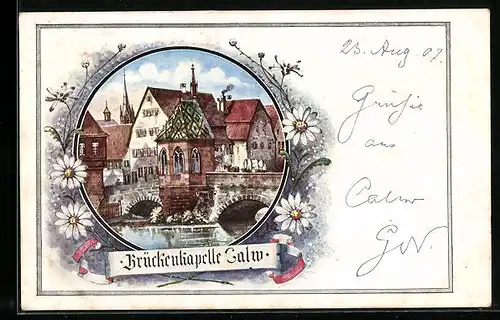 23. Aug 07.
Grüße
aus
Calw
Brückenkapelle Calw